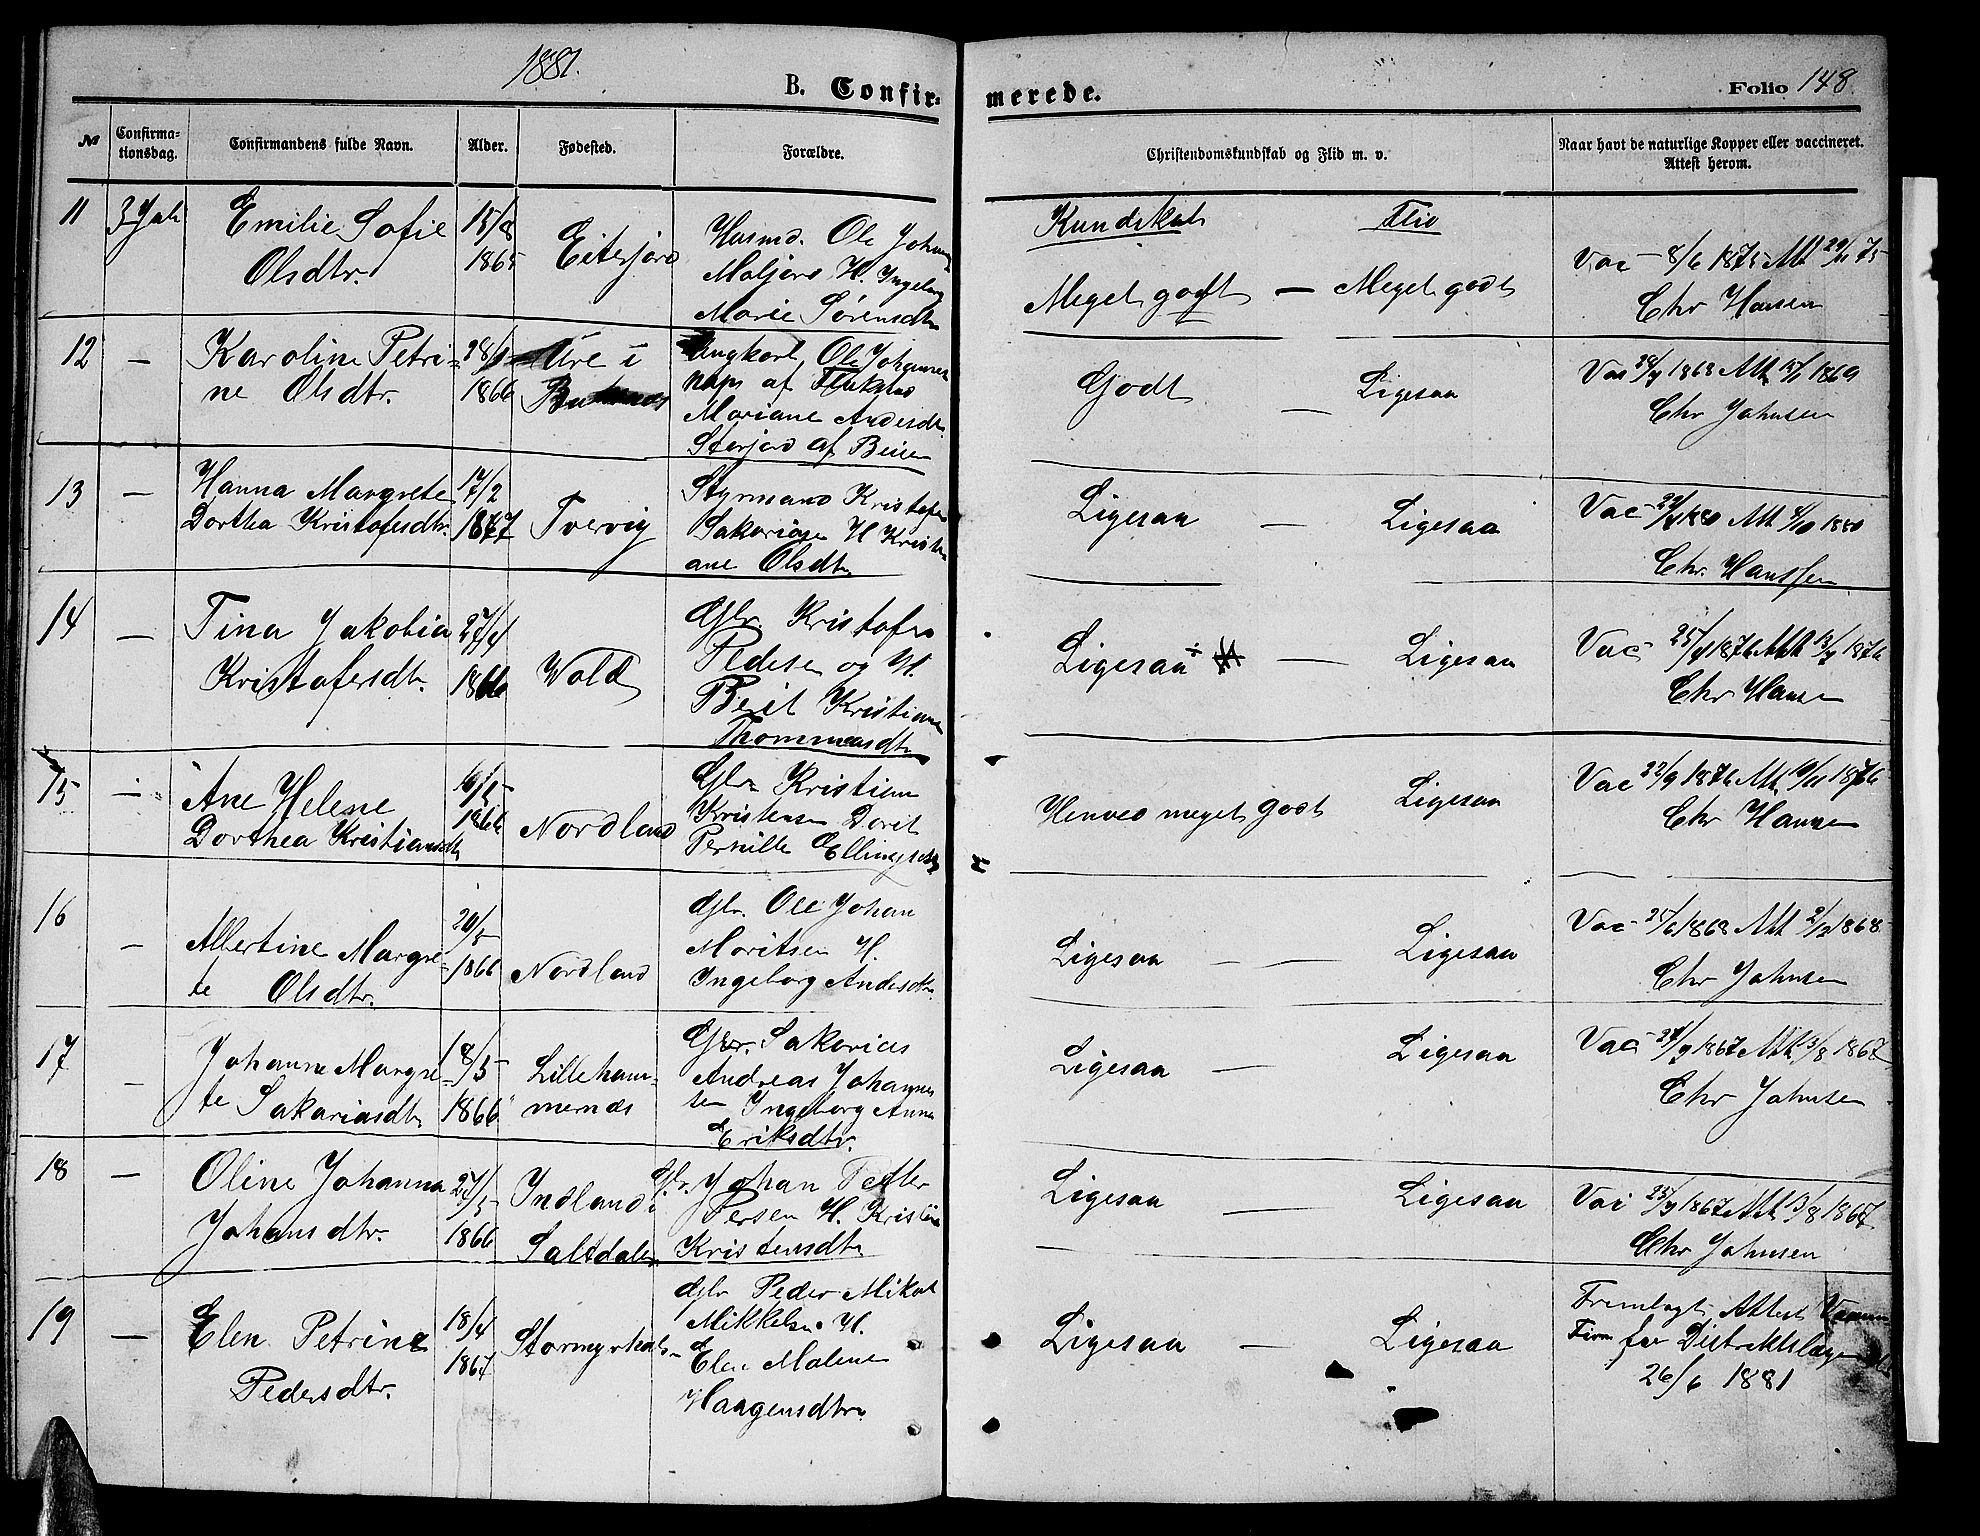 1881.
B. Confir-
merede.
Folio 148
№
Confirma-
tionsdag.
Confirmandens fulde Navn.
Alder.
Fødested.
Forældre.
Christendomskundskab og Flid m. v.
Naar havt de naturlige Kopper eller vaccineret.
Attest herom.
11
3 Juli
Emilie Sofie
Olsdtr.
15/8
1865
Eiterjord
Husmd. Ole Johan
Maljord H. Ingeborg
Marie Sørensdtr
Kundskab
Flid
Meget godt — Meget godt
Vac 8/6 1875 Att 29/11 75
Chr Hansen
12
—
Karoline Petri-
ne Olsdtr.
1866
Ure i
Ungkarl Ole Johannes
Mariane Andersdtr.
Storjord af Beiern
Godt — Ligesaa
Chr Johnsen
13
—
Hanna Margrete
Dorthea Kristofersdtr.
17/2
1867
Tvervig
Styrmand Kristofer
Sakariasen H Kristi-
ane Olsdtr
Ligesaa — Ligesaa
Chr. Hanssen
14
—
Tina Jakobia
Kristofersdtr.
27/4
1866
Wold
Gbr. Kristofer
Pedersen og H.
Berit Kristiane
Thommasdtr
Ligesaa — Ligesaa
Vac 25/4 1876 Att 13/7 1876
Chr Hansen
15
—
Ane Helene
Dorthea Kristiansdtr
1866
Nordland
Gbr Kristian
Kristensen Dorit
Pernille Ellingsdtr
Henved meget godt Ligesaa
Vac 22/9 1876 Att 10/11 1876
Chr Hansen
16
—
Albertine Margre-
te Olsdtr.
20/5
1866
Nordland
Gbr. Ole Johan
Moritsen H.
Ingeborg Andersdtr.
Ligesaa — — Ligesaa
Vac 25/6 1868 Att 2/12 1868
Chr Johnsen
17
—
Johanne Margre-
te Sakariasdtr
18/5
1866
Lilleham-
mernæs
Gbr. Sakarias
Andreas Johannes
sen Ingeborg Anna
Eriksdtr.
Ligesaa — Ligesaa
Vac 24/7 1867 Att 3/8 1867
Chr Johnsen
18
—
Oline Johanna
Johansdtr.
27/5
1866
Indland i
Saltdalen
Gbr. Johan Petter
Persen H. Kristine
Kristensdtr
Ligesaa — Ligesaa
Vac 25/7 1867 Att 3/8 1867
Chr Johnsen
19
—
Elen Petrine
Pedersdtr.
18/4
1867
Gbr Peder Mikal
Mikkelsen H.
Elen Malene
Haagensdtr
Ligesaa — Ligesaa
Fremlagt Attest
fra Distriktslægen
26/6 1881